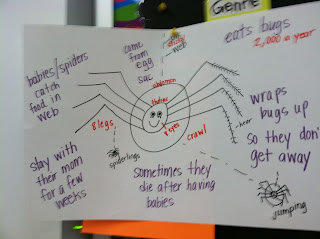 Genre
eats bugs
2,000 a year
babies/spiders
catch
food in
web
came
from
egg
sac
web
abdomen
thorax
8 eyes
8 legs
crawl
hair
wraps
bugs up
so they don't
get away
stay with
their mom
for a few
weeks
spiderlings
sometimes they
die after having
babies
jumping